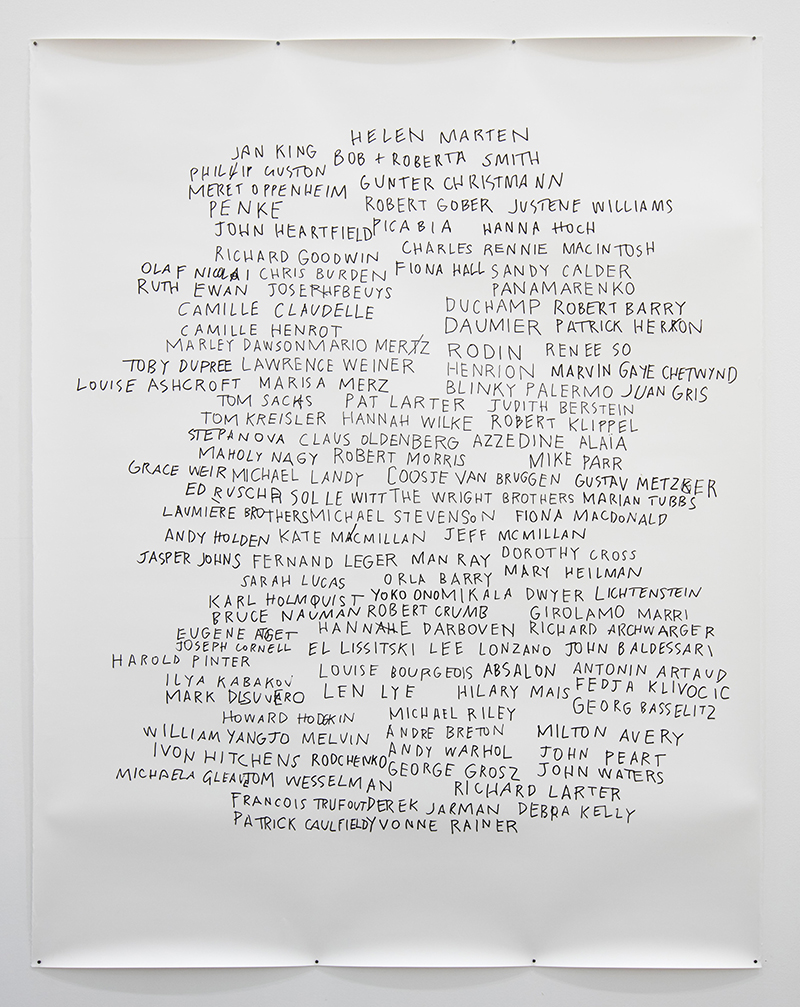 HELEN MARTEN
JAN KING BOB + ROBERTA SMITH
PHILLIP GUSTON
MERET OPPENHEIM GUNTER CHRISTMANN
PENKE ROBERT GOBER JUSTENE WILLIAMS
JOHN HEARTFIELD PICABIA HANNA HOCH
RICHARD GOODWIN CHARLES RENNIE MACINTOSH
OLAF NICOLAI CHRIS BURDEN FIONA HALL SANDY CALDER
RUTH EWAN JOSEPH BEUYS PANAMARENKO
CAMILLE CLAUDELLE DUCHAMP ROBERT BARRY
CAMILLE HENROT DAUMIER PATRICK HERRON
MARLEY DAWSON MARIO MERTZ RODIN RENEE SO
TOBY DUPREE LAWRENCE WEINER HENRION MARVIN GAYE CHETWYND
LOUISE ASHCROFT MARISA MERZ BLINKY PALERMO JUAN GRIS
TOM SACHS PAT LARTER JUDITH BERSTEIN
TOM KREISLER HANNAH WILKE ROBERT KLIPPEL
STEPANOVA CLAUS OLDENBERG AZZEDINE ALAIA
MAHOLY NAGY ROBERT MORRIS MIKE PARR
GRACE WEIR MICHAEL LANDY COOSJE VAN BRUGGEN GUSTAV METZGER
ED RUSCHA SOL LE WITT THE WRIGHT BROTHERS MARIAN TUBBS
LAUMIERE BROTHERS MICHAEL STEVENSON FIONA MACDONALD
ANDY HOLDEN KATE MACMILLAN JEFF MCMILLAN
JASPER JOHNS FERNAND LEGER MAN RAY DOROTHY CROSS
SARAH LUCAS ORLA BARRY MARY HEILMAN
KARL HOLMQUIST YOKO ONO MIKALA DWYER LICHTENSTEIN
BRUCE NAUMAN ROBERT CRUMB GIROLAMO MARRI
EUGENE ATGET HANNAHE DARBOVEN RICHARD ARCHWARGER
JOSEPH CORNELL EL LISSITSKI LEE LONZANO JOHN BALDESSARI
HAROLD PINTER LOUISE BOURGEOIS ABSALON ANTONIN ARTAUD
ILYA KABAKOV FEDJA KLIVOCIC
MARK DISUVERO LEN LYE HILARY MAIS
HOWARD HODGKIN MICHAEL RILEY GEORG BASSELITZ
WILLIAM YANG JO MELVIN ANDRE BRETON MILTON AVERY
IVON HITCHENS RODCHENKO ANDY WARHOL JOHN PEART
MICHAELA GLEAVE TOM WESSELMAN GEORGE GROSZ JOHN WATERS
RICHARD LARTER
FRANCOIS TRUFOUT DEREK JARMAN DEBRA KELLY
PATRICK CAULFIELD YVONNE RAINER